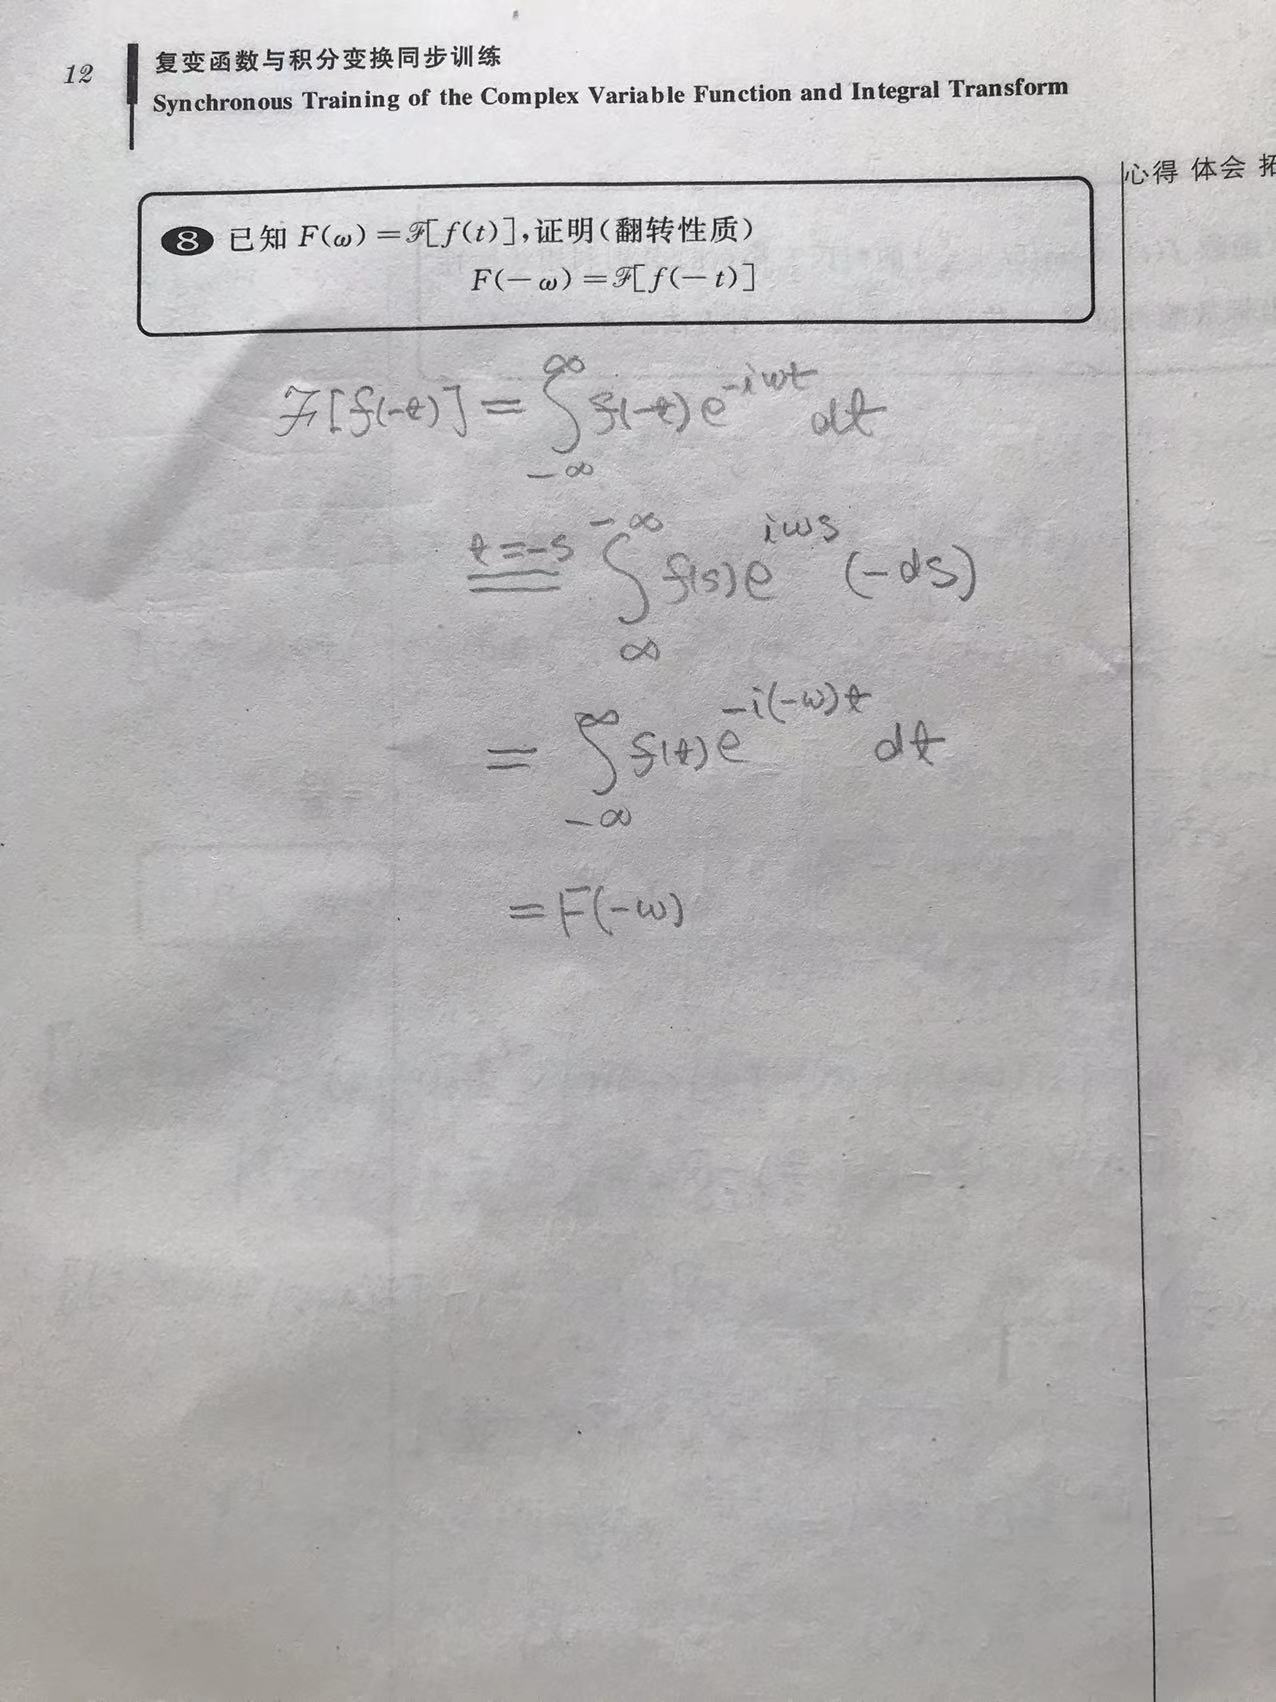 12
复变函数与积分变换同步训练
Synchronous Training of the Complex Variable Function and Integral Transform
心得 体会 拓
8 已知 F(ω)=ℱ[f(t)],证明(翻转性质)
F(-ω)=ℱ[f(-t)]
ℱ[f(-t)] = ∫_{-∞}^{∞} f(-t) e^{-iωt} dt
t=-s ∫_{∞}^{-∞} f(s) e^{iωs} (-ds)
= ∫_{-∞}^{∞} f(t) e^{-i(-ω)t} dt
= F(-ω)